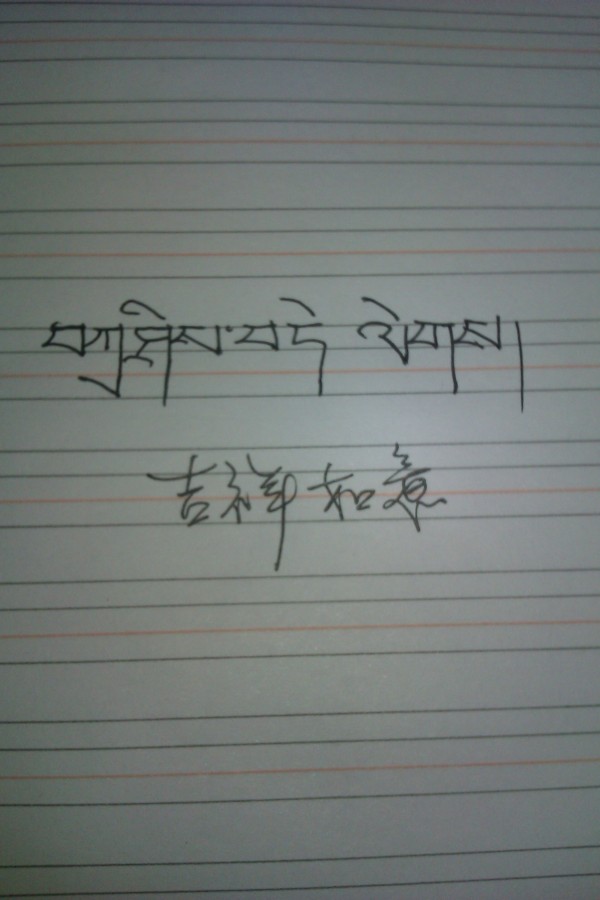 བཀྲཤིས་བདེ ལེགས།
吉祥如意